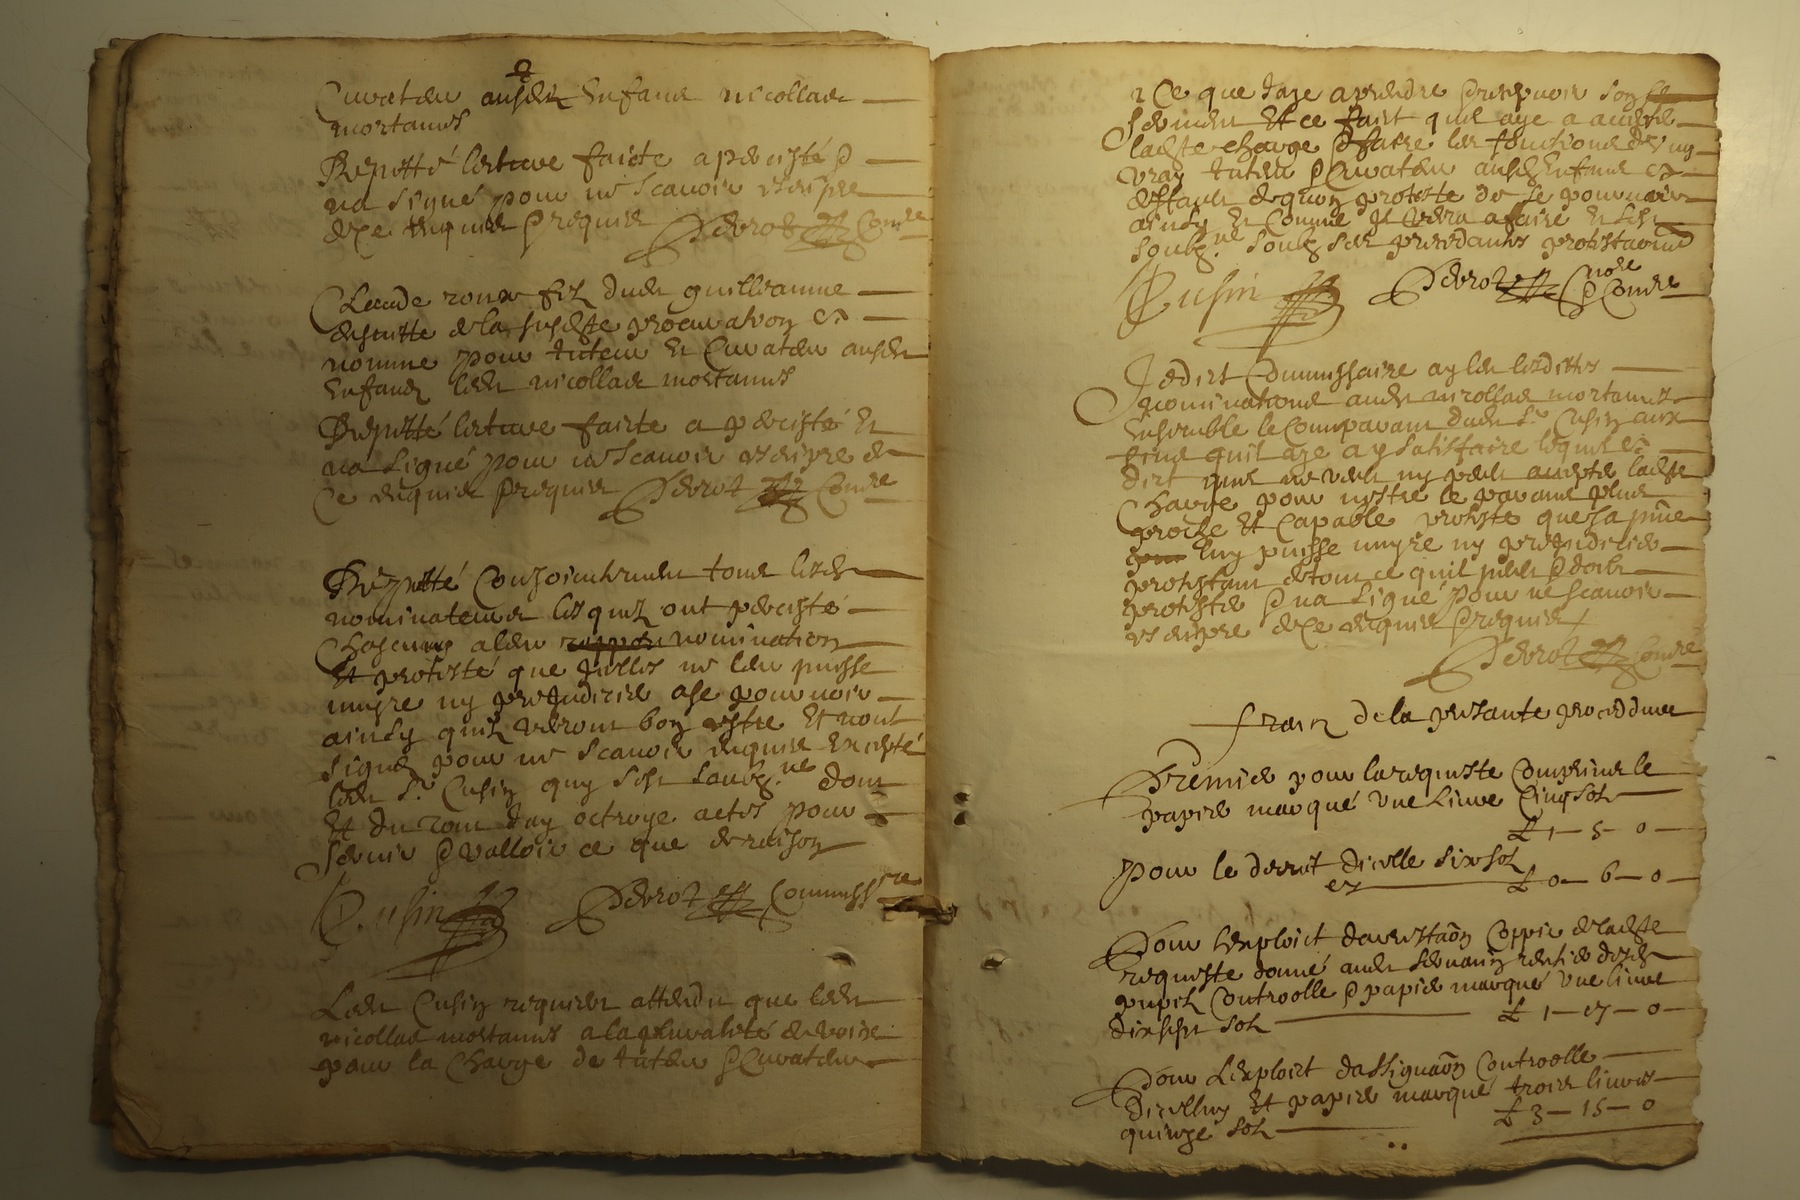 Curateur ausdit Enfant nicollas
mortamis
Repetté lecture faicte a percisté &
na signé pour ne scavoir escripre
de ce enquis & requis Perrot Comre
Claude roux filz dudit guilliaume
ensuitte de la susdite procuration et
nomme pour tuteur et Curateur ausdit
Enfans ledit nicollas mortamis
Repetté lecture faicte a perciste et
na signé pour ne scavoir escripre de
Ce enquis & requis Perrot Comre
Repetté Conjoinctement tous lesdits
nominateurs lesquelz ont perciste
Chascung a leur nomination
Et protesté que icelles ne leur puisse
nuyre ny prejudicier a se pourvoir
ainsy quilz verront bon estre Et nont
signé pour ne scavoir enquis Excepté
ledit Sr Cusin quy sest soubzne dont
Et du tout Jay octroye actes pour
servir & valloir ce que de raison
Cusin Perrot Commissre
Ledit Cusin requiert attendu que ledit
nicollas mortamis a la pluralité de voix
pour la Charge de tuteur & Curateur
a Ce que
serment Et ce faict quil aye a accepter
ladite charge & faire les fonctions dung
vray tuteur & Curateur ausdits Enfans et
deffault de quoy proteste de se pourvoir
ainsy et Comme Il verra a faire et sest
soubzne soubz ses precedantes protestations
Cusin Perrot nore & Comre
Je dict Commissaire ay leu lesdittes
nominations audit nicollas mortamis
Ensemble le Comparant dudit Sr Cusin aux
fins quil aye a y satisfaire lequel a
dict quil ne veut ny peut accepter ladite
Charge pour nestre le parans plus
proche Et Capable proteste que sa pnte
luy puisse nuyre ny prejudicier
protestant de tout ce quil peult & doibt
protester & na signé pour ne scavoir
escripre de Ce enquis & requis
Perrot Comre
fraiz de la presante procedure
Premier pour la requeste Comprins le
papier marqué une Livre Cinq solz
£ 1 - 5 - 0
pour le decret dicelle six solz
£ 0 - 6 - 0
Pour lexploict Coppie de ladite
requeste donné
Controolle & papier marqué une livre
dixsept solz £ 1 - 17 - 0
Pour Lexploict dassignaon Controolle
dicelluy Et papier marqué trois livres
quinze solz £ 3 - 15 - 0